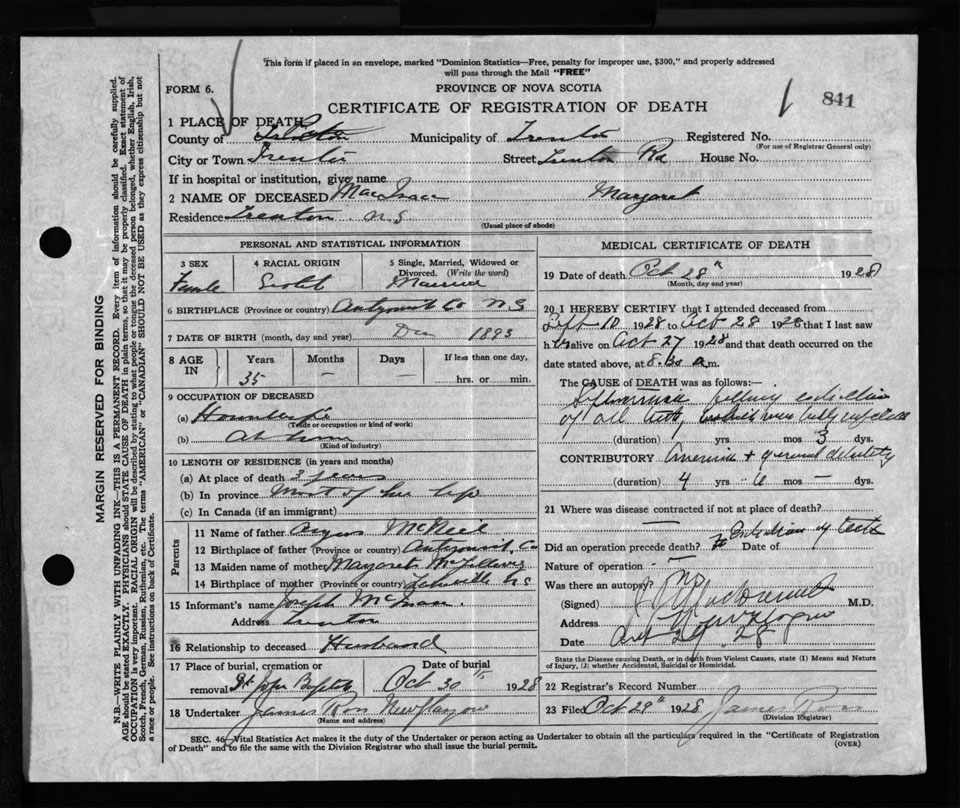 This form if placed in an envelope, marked "Dominion Statistics—Free, penalty for improper use, $300," and properly addressed
will pass through the Mail "FREE"
FORM 6.
PROVINCE OF NOVA SCOTIA
CERTIFICATE OF REGISTRATION OF DEATH
841
1 PLACE OF DEATH
County of Pictou Municipality of Trenton Registered No.
(For use of Registrar General only)
City or Town Trenton Street Trenton Rd House No.
If in hospital or institution, give name
2 NAME OF DECEASED MacIsaac Margaret
Residence Trenton N.S
(Usual place of abode)
PERSONAL AND STATISTICAL INFORMATION
3 SEX
Female
4 RACIAL ORIGIN
Scotch
5 Single, Married, Widowed or
Divorced. (Write the word)
Married
6 BIRTHPLACE (Province or country) Antigonish Co N S
7 DATE OF BIRTH (month, day and year) Dec 1893
8 AGE IN
Years Months Days If less than one day,
35 — — hrs. or min.
9 OCCUPATION OF DECEASED
(a) Housewife
(Trade or occupation or kind of work)
(b) At home
(Kind of industry)
10 LENGTH OF RESIDENCE (in years and months)
(a) At place of death 3 years
(b) In province Most of her life
(c) In Canada (if an immigrant)
Parents
11 Name of father Angus McNeil
12 Birthplace of father (Province or country) Antigonish Co
13 Maiden name of mother Margaret McGillivray
14 Birthplace of mother (Province or country) N S
15 Informant's name Joseph McIsaac
Address Trenton
16 Relationship to deceased Husband
17 Place of burial, cremation or Date of burial
removal St John Baptist Oct 30 1928
18 Undertaker James Ross New Glasgow
(Name and address)
MEDICAL CERTIFICATE OF DEATH
19 Date of death Oct 28th 1928
(Month, day and year)
20 I HEREBY CERTIFY that I attended deceased from
Sept 10 1928 to Oct 28 1928 that I last saw
her alive on Oct 27 1928 and that death occurred on the
date stated above, at 8.30 a.m.
The CAUSE of DEATH was as follows:—
Septicemia following extraction
of all teeth, which were badly infected
(duration) yrs mos 3 dys.
CONTRIBUTORY Anemia & general debility
(duration) 4 yrs 6 mos — dys.
21 Where was disease contracted if not at place of death?
—
Did an operation precede death? Date of Extraction of teeth
Nature of operation -
Was there an autopsy? No
(Signed) M.D.
Address New Glasgow
Date Oct 29 28
State the Disease causing Death, or in death from Violent Causes, state (1) Means and Nature
of Injury, (2) whether Accidental, Suicidal or Homicidal.
22 Registrar's Record Number
23 Filed Oct 29th 1928 James Ross
(Division Registrar)
SEC. 46, Vital Statistics Act makes it the duty of the Undertaker or person acting as Undertaker to obtain all the particulars required in the "Certificate of Registration
of Death" and to file the same with the Division Registrar who shall issue the burial permit.
(OVER)
MARGIN RESERVED FOR BINDING
N.B.—WRITE PLAINLY WITH UNFADING INK—THIS IS A PERMANENT RECORD. Every item of information should be carefully supplied.
AGE should be stated EXACTLY. PHYSICIANS should STATE CAUSE OF DEATH in plain terms, so that it may be properly classified. Exact statement of
OCCUPATION is very important. RACIAL ORIGIN will be described by stating to what people or tongue the deceased person belonged, whether English, Irish,
Scotch, French, German, Russian, Ruthenian, etc. The terms "AMERICAN" or "CANADIAN" SHOULD NOT BE USED as they express citizenship but not
a race or people. See instructions on back of Certificate.